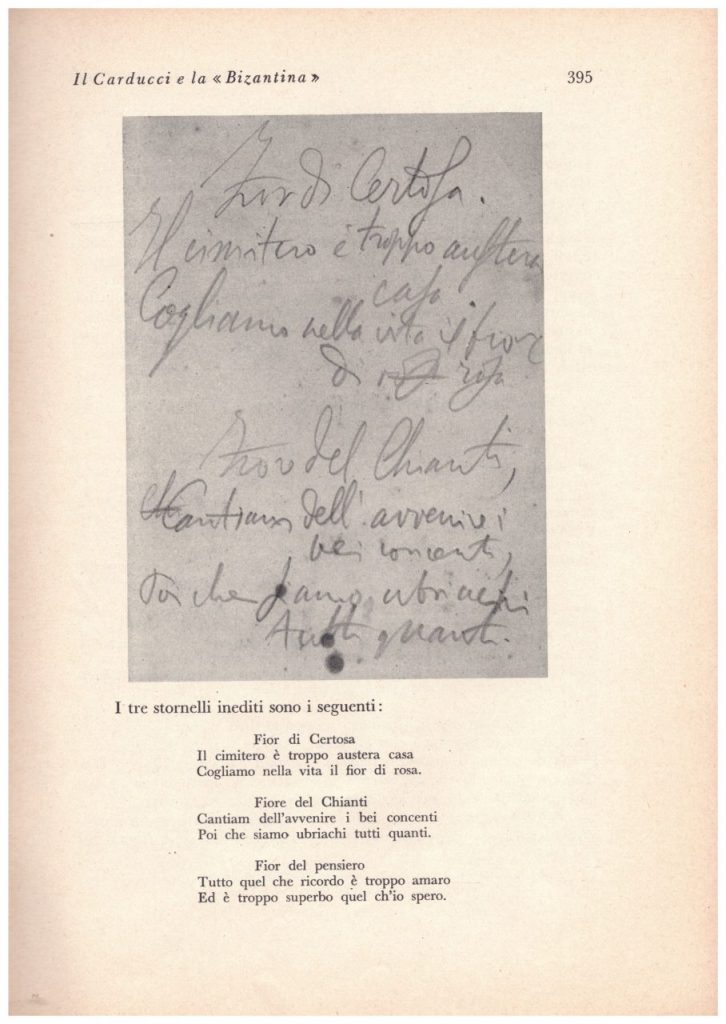 Il Carducci e la « Bizantina »
395
Fior di Certosa.
Il cimitero è troppo austera
casa
Cogliamo nella vita il fior
di rosa
Fior del Chianti,
Cantiam dell'avvenire i
bei concenti,
Poi che siamo ubriachi
tutti quanti.
I tre stornelli inediti sono i seguenti:
Fior di Certosa
Il cimitero è troppo austera casa
Cogliamo nella vita il fior di rosa.
Fiore del Chianti
Cantiam dell'avvenire i bei concenti
Poi che siamo ubriachi tutti quanti.
Fior del pensiero
Tutto quel che ricordo è troppo amaro
Ed è troppo superbo quel ch'io spero.